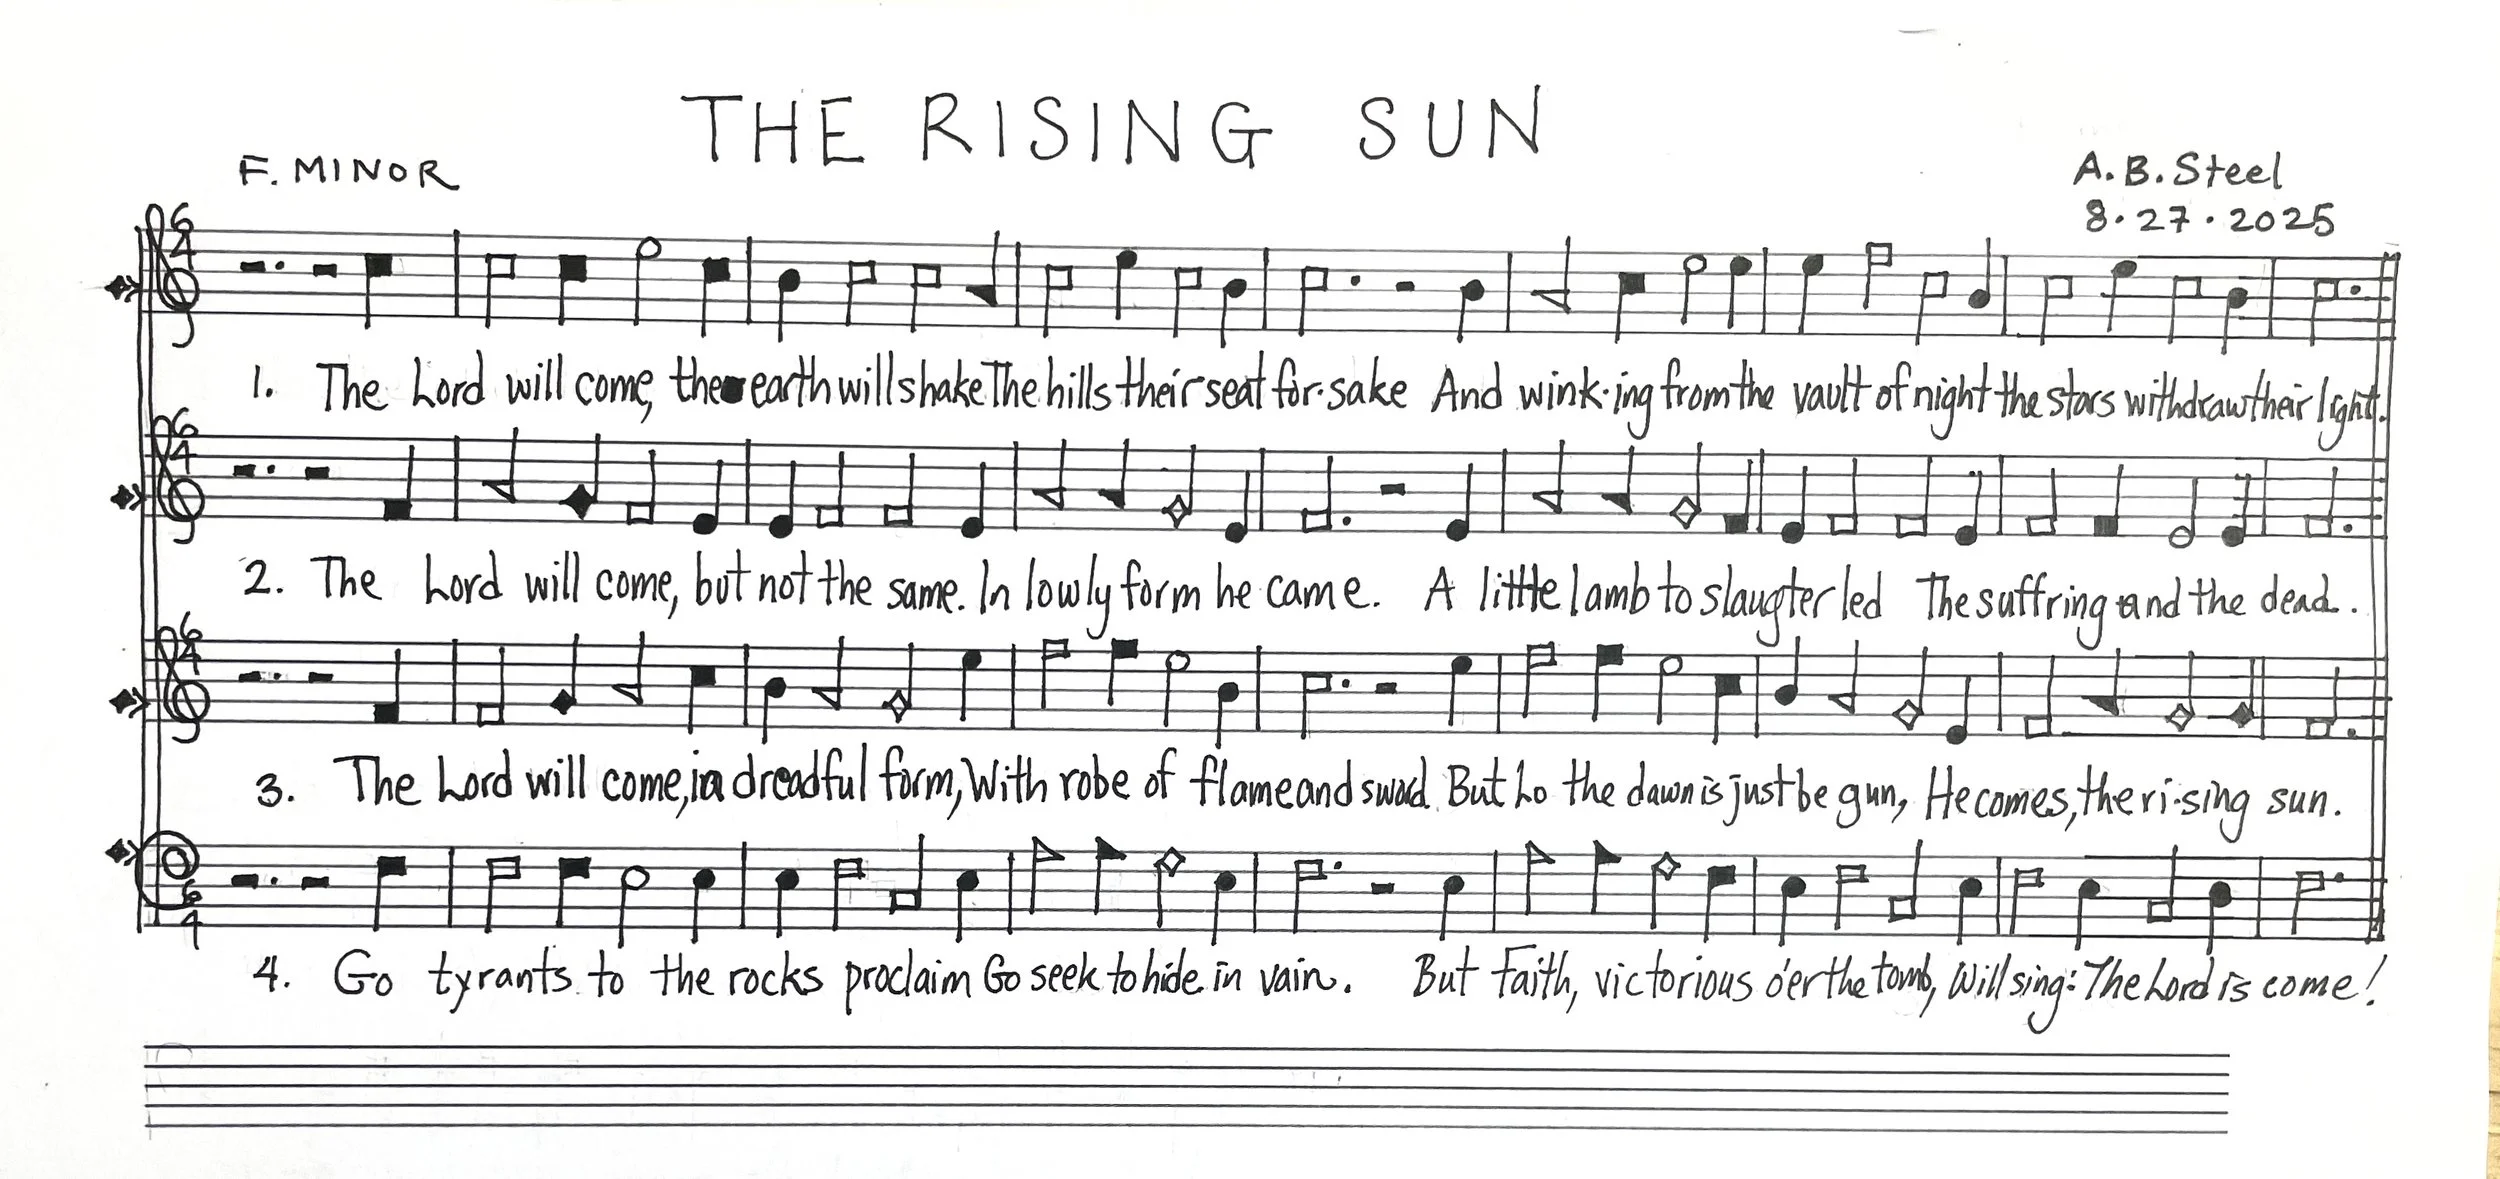 THE RISING SUN
F. MINOR
A. B. Steel
8·27·2025
6
4
1. The Lord will come, the earth will shake The hills their seat for·sake And wink·ing from the vault of night the stars withdraw their light.
6
4
2. The Lord will come, but not the same. In lowly form he came. A little lamb to slaugter led The suffring and the dead.
6
4
3. The Lord will come, in dreadful form, With robe of flame and sword But Lo the dawn is just be gun, He comes, the ri-sing sun.
6
4
4. Go tyrants to the rocks proclaim Go seek to hide in vain. But Faith, victorious o'er the tomb, Will sing: The Lord is come!